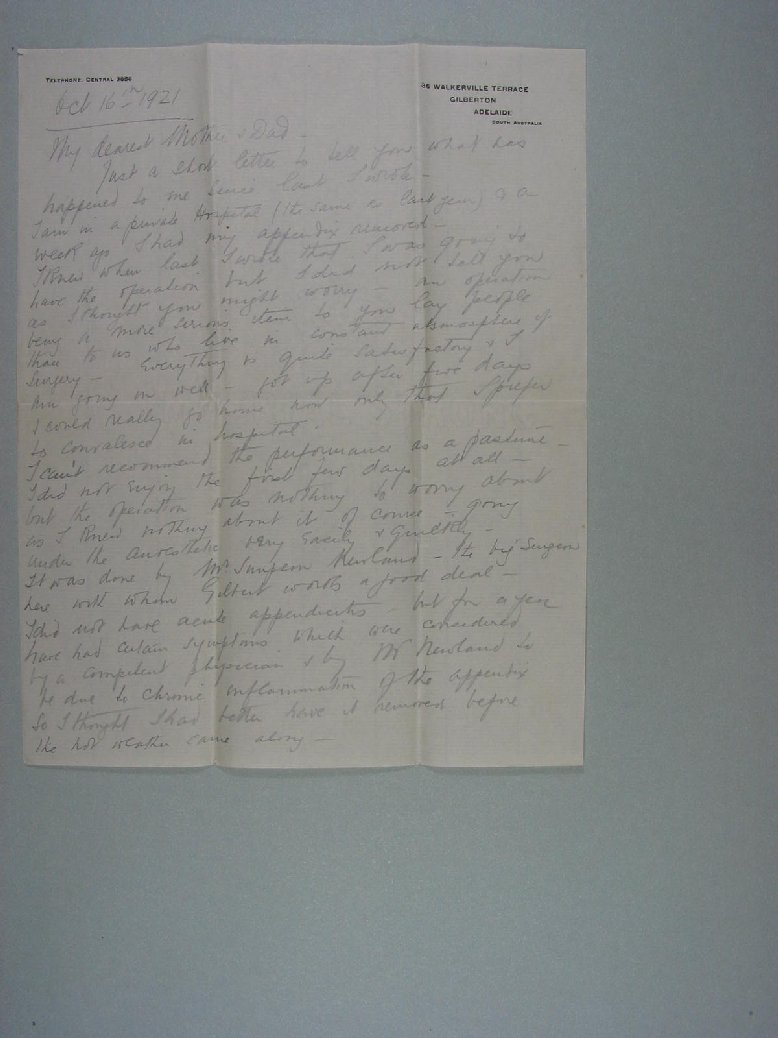 TELEPHONE, CENTRAL 3656
86 WALKERVILLE TERRACE
GILBERTON
ADELAIDE
SOUTH AUSTRALIA
Oct 16th 1921
My dearest Mother & Dad -
Just a short letter to tell you what has
happened to me since last I wrote -
I am in a private Hospital (the same as last year) & a
week ago I had my appendix removed -
I knew when last I wrote that I was going to
have the operation but I did not tell you
as I thought you might worry - an operation
being a more serious item to you lay people
than to us who live in constant atmosphere of
Surgery - Everything is quite satisfactory & I
am going on well - got up after five days
I could really go home now only that I prefer
to convalesce in hospital.
I can't recommend the performance as a pastime -
I did not enjoy the first few days at all -
but the operation was nothing to worry about
as I knew nothing about it of course - going
under the anaesthetic very easily & quickly -
It was done by Mr Simpson Newland - the big Surgeon
here with whom Gilbert works a good deal -
I did not have acute appendicitis - but for a year
have had certain symptoms which were considered
by a competent physician & by Mr Newland to
be due to chronic inflammation of the appendix
So I thought I had better have it removed before
the hot weather came along -